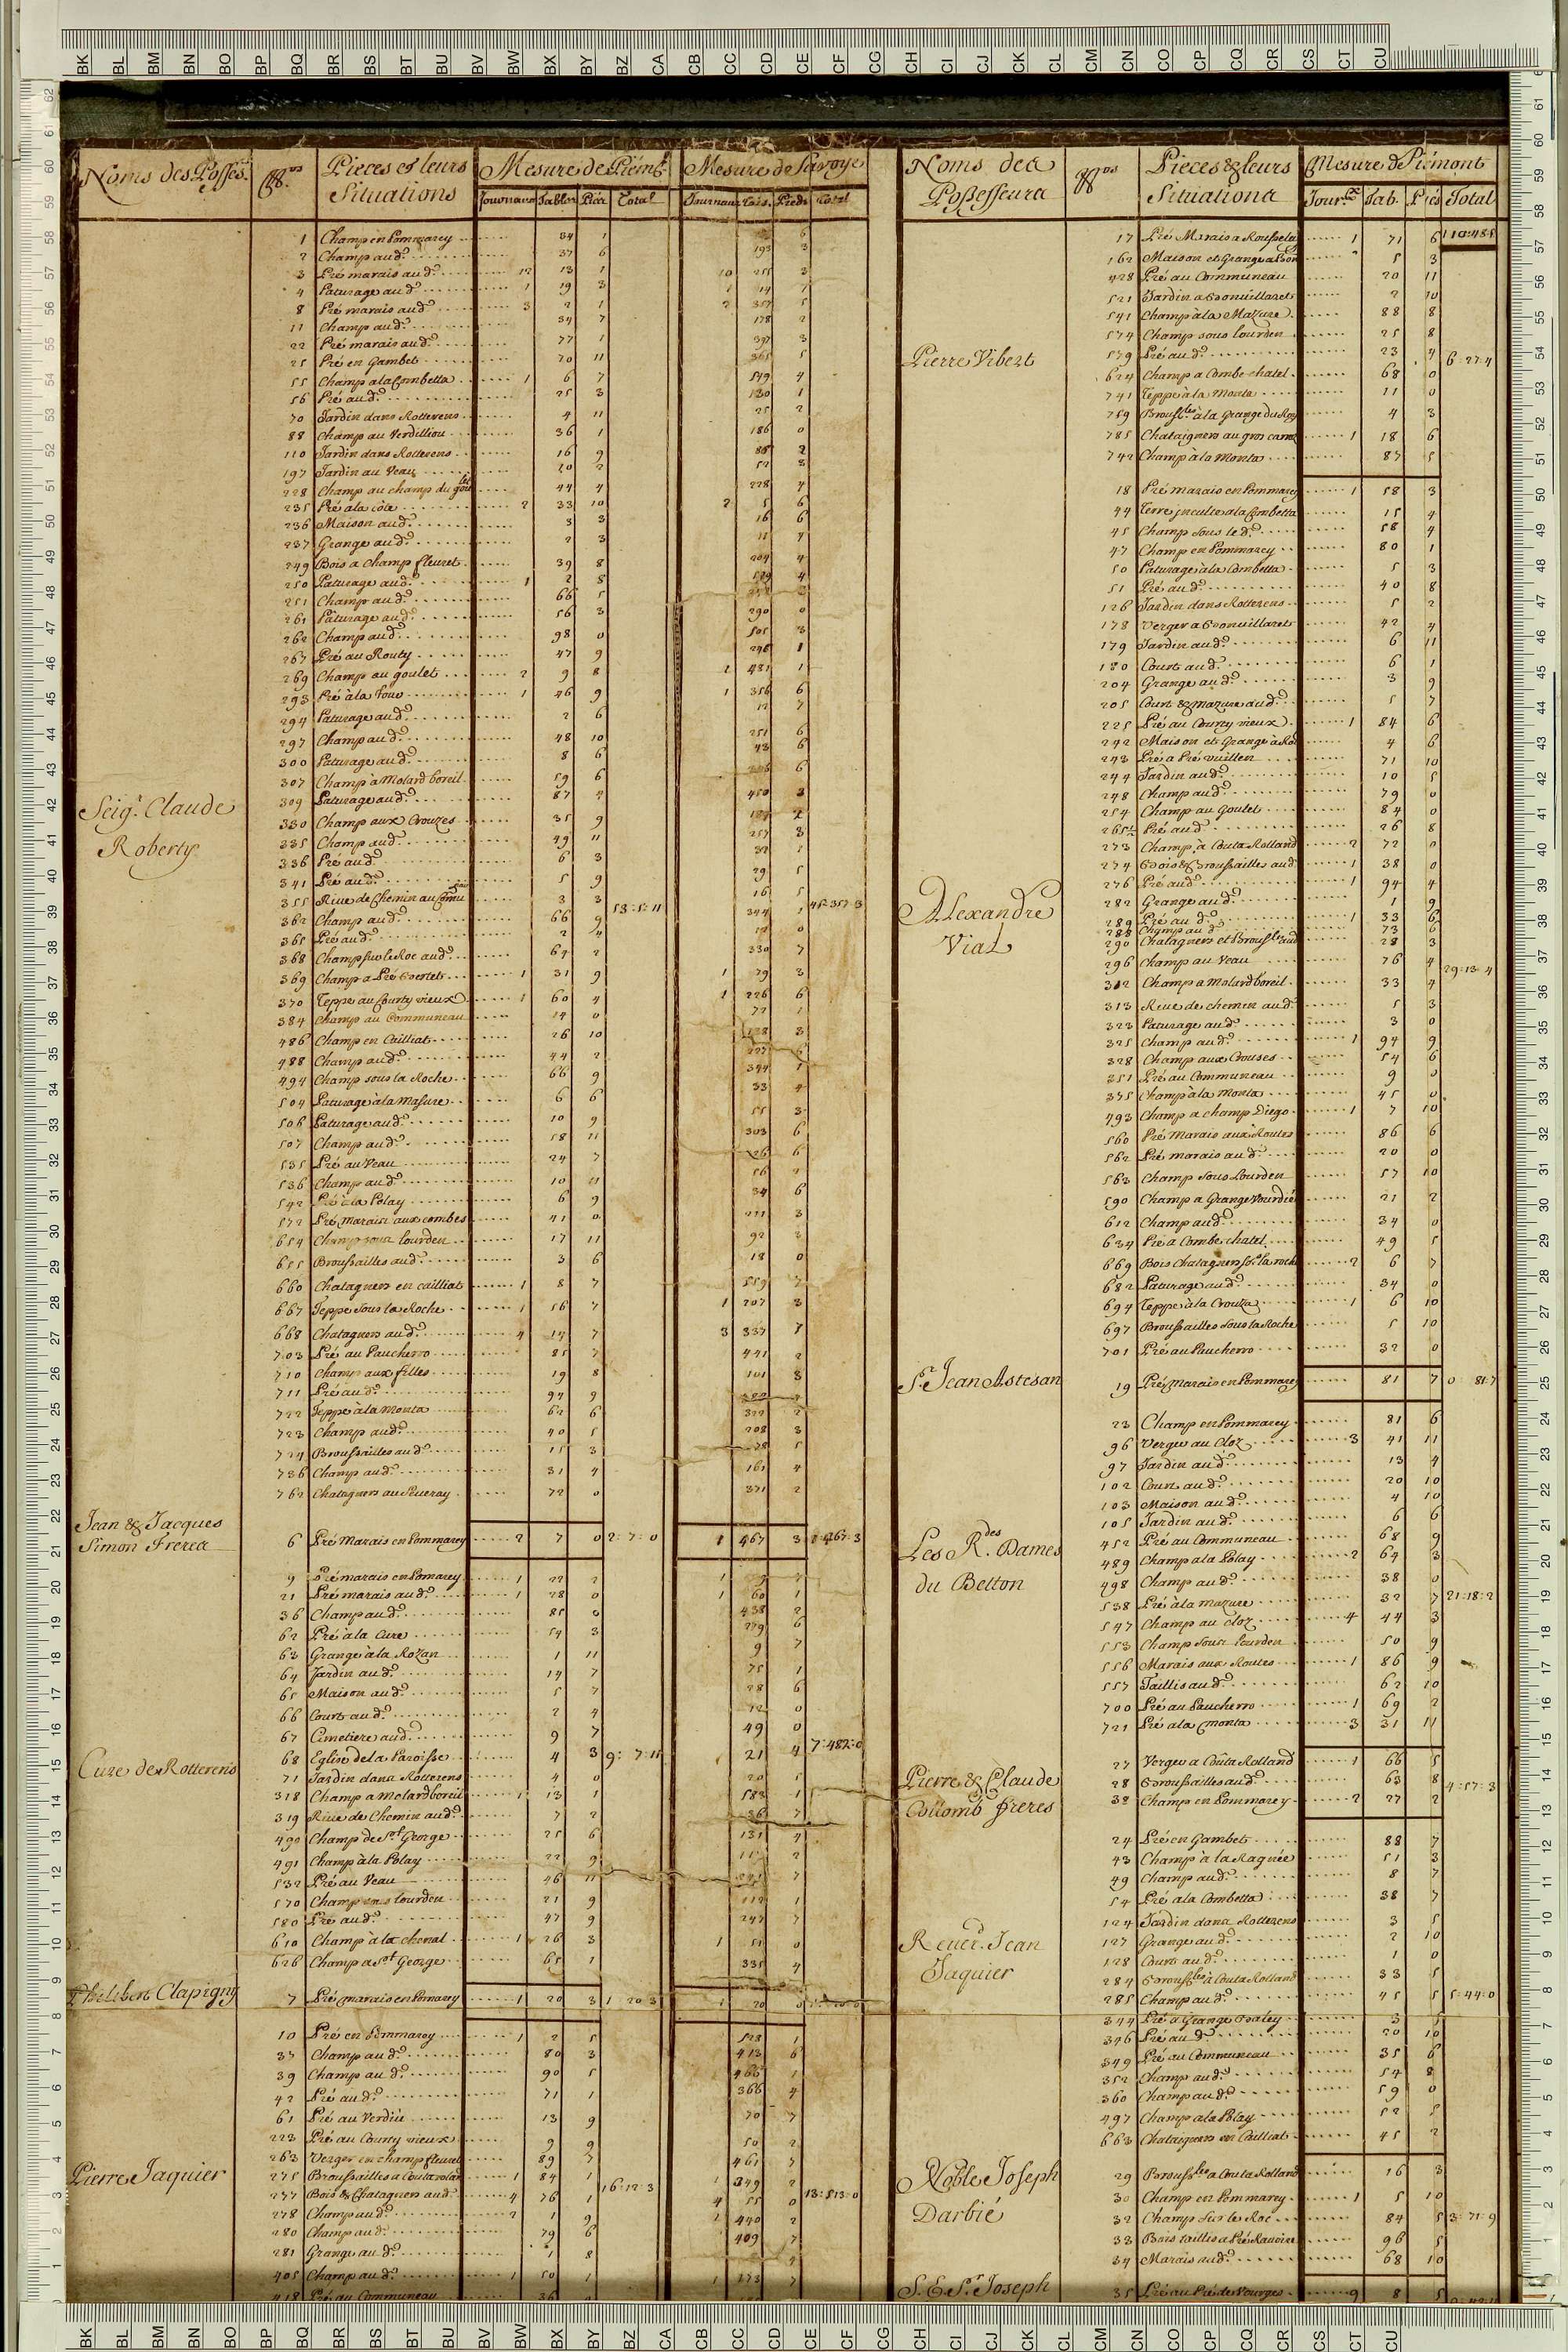 Noms des Possess.rs
Pieces & leurs Situations
Mesure de Piémt
Mesure de Savoye
Journaux Tables Piés Total
Journaux Tois. Pieds Total
1 Champ en Pommarey 34 1
2 Champ aud.o 37 6 193 3
3 Pré marais aud.o 12 13 1 10 255 3
4 Paturage aud.o 1 19 3 1 14 7
8 Pré marais aud.o 3 2 1 2 357 5
11 Champ aud.o 34 7 178 2
22 Pré marais aud.o 77 1 397 3
25 Pré en Gambet 70 11 365 5
55 Champ a la Combetta 1 6 7 549 4
56 Pré aud.o 25 3 130 1
70 Jardin dans Rotterens 4 11 25 2
88 Champ au Verdilliou 36 1 186 0
110 Jardin dans Rotterens 16 9
197 Jardin au Veau 20 2
228 Champ au champ du 44 4 228 4
235 Pré a la côte 2 33 10 2 5 6
236 Maison aud.o 3 3 16 6
237 Grange aud.o 2 3 11 4
249 Bois a Champ fleuret 39 8 204 4
250 Paturage aud.o 1 2 8 529 4
251 Champ aud.o 66 5
261 Paturage aud.o 56 3 290 0
262 Champ aud.o 98 0 505 3
267 Pré au Routy 47 9 246 1
269 Champ au goulet 2 9 8 2 481 1
293 Pré à la Fouo 1 46 9 1 356 6
294 Paturage aud.o 2 6 12 7
297 Champ aud.o 48 10 251 6
300 Paturage aud.o 8 6 43 6
307 Champ à Molard boreil 59 6
309 Paturage aud.o 87 4 450 3
Seig.r Claude Roberty
330 Champ aux Crouzes 35 9
335 Champ aud.o 49 11 257 3
336 Pré aud.o 6 3 32 2
341 Pré aud.o 5 9 29 5
355 Rive de Chemin au 3 3 16 5
362 Champ aud.o 66 9 53:5:11 344 1 45:357:3
365 Pré aud.o 2 4 12 0
368 Champ sur le Roc aud.o 64 2 330 7
369 Champ a Pré Bertet 1 31 9 1 79 3
370 Teppe au Courty vieux 1 60 4 1 226 6
384 Champ au Communeau 14 0 72 1
486 Champ en Cailliat 26 10 138 3
488 Champ aud.o 44 2 227 6
494 Champ sous la Roche 66 9 344 1
504 Paturage à la Masure 6 6 33 4
506 Paturage aud.o 10 9 55 3
507 Champ aud.o 58 11 303 6
535 Pré au Veau 24 7 126 6
536 Champ aud.o 10 11 56 2
542 Pré à la Polay 6 9 34 6
572 Pré marais aux combes 41 0 211 3
654 Champ sous lourden 17 11 92 3
655 Broussailles aud.o 3 6 18 0
660 Chatagners en cailliat 1 8 7 559 7
667 Teppe sous la Roche 1 56 7 1 207 3
668 Chatagners aud.o 4 14 7 3 337 7
703 Pré au Paucherro 85 7 441 2
710 Champ aux filles 19 8 101 3
711 Pré aud.o 94 9
722 Teppe à la Monta 62 6 322 2
723 Champ aud.o 40 5 208 3
724 Broussailles aud.o 15 3 78 5
736 Champ aud.o 31 4 161 4
762 Chatagners au Seueray 72 0 371 2
Jean & Jacques Simon Freres
6 Pré Marais en Pommarey 2 7 0 2:7:0 1 467 3 1:467:3
9 Pré marais en Pomarey 1 22 2 1
21 Pré marais aud.o 1 28 0 1 60 1
36 Champ aud.o 85 0 438 2
62 Pré à la Cure 54 3 279 6
63 Grange à la Rozan 1 11 9 7
64 Jardin aud.o 14 7 75 1
65 Maison aud.o 5 7 28 6
66 Court aud.o 2 4 12 0
67 Cimetiere aud.o 9 7 49 0
Cure de Rotterens
68 Eglise de la Paroisse 4 3 9:7:11 21 4 7:482:0
71 Jardin dans Rotterens 4 0 20 5
318 Champ a Molard boreil 1 13 1 583 1
319 Rive de Chemin aud.o 7 2 36 7
490 Champ de S.t George 25 6 131 4
491 Champ à la Polay 22 9
532 Pré au Veau 46 11
570 Champ sous lourden 21 9 112 1
580 Pré aud.o 47 9 247 7
610 Champ à la chenal 1 26 3 1 51 0
626 Champ a S.t George 65 1 335 4
Philibert Clapigny
7 Pré marais en Pomarey 1 20 3 1 20 3 1 20 0
10 Pré en Pommarey 1 2 5 528 1
37 Champ aud.o 80 3 413 6
39 Champ aud.o 90 5 466 1
42 Pré aud.o 71 1 366 4
61 Pré au Verdiu 13 9 70 7
223 Pré au Courty vieux 9 9 50 2
263 Verger en champ fleuret 89 7 461 7
Pierre Jaquier
275 Broussailles a Couta rolan 1 84 1 16:12:3 1 349 2
277 Bois & Chatagners aud.o 4 76 1 4 55 0 13:513:0
278 Champ aud.o 2 1 9 1 440 2
280 Champ aud.o 79 6 409 7
281 Grange aud.o 1 8
405 Champ aud.o 1 50 1 1 173 7
418 Pré au Communeau 36
Noms des Possesseurs
Pieces & leurs Situations
Mesure de Piémont
Jour.x Tab. Piés Total
17 Pré Marais a Rousselet 1 71 6 110:48:5
162 Maison et Grange a 5 3
428 Pré au Communeau 20 11
521 Jardin a Bonvillaret 2 10
541 Champ à la Mazure 88 8
574 Champ sous lourden 25 8
Pierre Vibert
579 Pré aud.o 23 4 6:27:4
624 Champ a Combe chatel 68 0
741 Teppe à la Monta 11 0
759 Brouss.les à la Grange du Roy 4 3
785 Chataigners au gros carroz 1 18 6
742 Champ à la Monta 87 5
18 Pré marais en Pommarey 1 58 3
44 Terre inculte a la Combetta 15 4
45 Champ sous le d.o 58 4
47 Champ en Pommarey 80 1
50 Paturage à la Combetta 5 3
51 Pré aud.o 40 8
126 Jardin dans Rotterens 5 2
178 Verger a Bonvillaret 42 4
179 Jardin aud.o 6 11
180 Court aud.o 6 1
204 Grange aud.o 3 9
205 Court & mazure aud.o 5 7
225 Pré au Courty vieux 1 84 6
242 Maison et Grange à 4 6
243 Pré a Pré vuillen 71 10
244 Jardin aud.o 10 5
248 Champ aud.o 79 0
254 Champ au Goulet 84 0
265½ Pré aud.o 26 8
273 Champ à Couta Rolland 2 72 0
274 Bois & Broussailles aud. 1 38 0
276 Pré aud.o 1 94 4
Alexandre Vial
282 Grange aud.o 1 9
289 Pré au d.o 1 33 6
288 Champ au d.o 73 6
290 Chatagners et Brouss.les aud. 28 3
296 Champ au Veau 76 4 29:13:4
312 Champ a Molard boreil 33 4
313 Rive de chemin aud.o 5 3
323 Paturage aud.o 3 0
325 Champ aud.o 1 94 9
328 Champ aux Crouses 54 6
351 Pré au Communeau 9 0
375 Champ à la Monta 45 0
493 Champ a champ Diego 1 7 10
560 Pré Marais aux Routes 86 6
562 Pré marais aud.o 20 0
563 Champ Sous Lourden 57 10
590 Champ a Grange Vourdié 21 2
612 Champ aud.o 34 0
634 Pré a Combe chatel 49 5
669 Bois Chatagners s.s la roche 2 6 7
682 Paturage aud.o 34 0
694 Teppe à la Crouza 1 6 10
697 Broussailles Sous la Roche 5 10
701 Pré au Paucherro 32 0
S.r Jean Astesan
19 Pré Marais en Pommarey 81 7 0:81:7
23 Champ en Pommarey 81 6
96 Verger au Cloz 3 41 11
97 Jardin aud.o 13 4
102 Cour aud.o 20 10
103 Maison au d.o 4 10
105 Jardin au d.o 6 6
Les R.des Dames du Betton
452 Pré au Communeau 68 9
489 Champ a la Polay 2 64 3
498 Champ au d.o 38 0
538 Pré à la mazure 32 7 21:18:2
547 Champ au cloz 4 44 3
553 Champ sous lourden 50 9
556 Marais aux Routes 1 86 9
557 Taillis au d.o 62 10
700 Pré au Paucherro 1 69 2
721 Pré a la monta 3 31 11
Pierre & Claude Collomb freres
27 Verger a Couta Rolland 1 66 5
28 Broussailles aud.o 63 8 4:57:3
38 Champ en Pommarey 2 27 2
24 Pré en Gambet 88 7
43 Champ à la Ragnée 51 3
49 Champ aud.o 8 7
54 Pré a la Combetta 38 7
124 Jardin dans Rotterens 3 5
Reuer.d Jean Jaquier
127 Grange au d.o 2 10
128 Court au d.o 1 0
284 Brouss.les à Couta Rolland 33 5
285 Champ au d.o 45 5 5:44:0
344 Pré a Grange Baley 3 5
346 Pré au d.o 20 10
349 Pré au Communeau 35 6
352 Champ aud.o 54 8
360 Champ aud.o 59 0
497 Champ a la Polay 52 5
663 Chataigners en Cailliat 45 2
Noble Joseph Darbié
29 Brouss.les a Couta Rolland 16 3
30 Champ en Pommarey 1 5 10
32 Champ Sur le Roc 84 5 3:71:9
33 Bois taillis a Pré Rauoire 96 5
34 Marais aud.o 68 10
S. E. S.r Joseph
35 Pré au Pré des Vourges 9 8 5